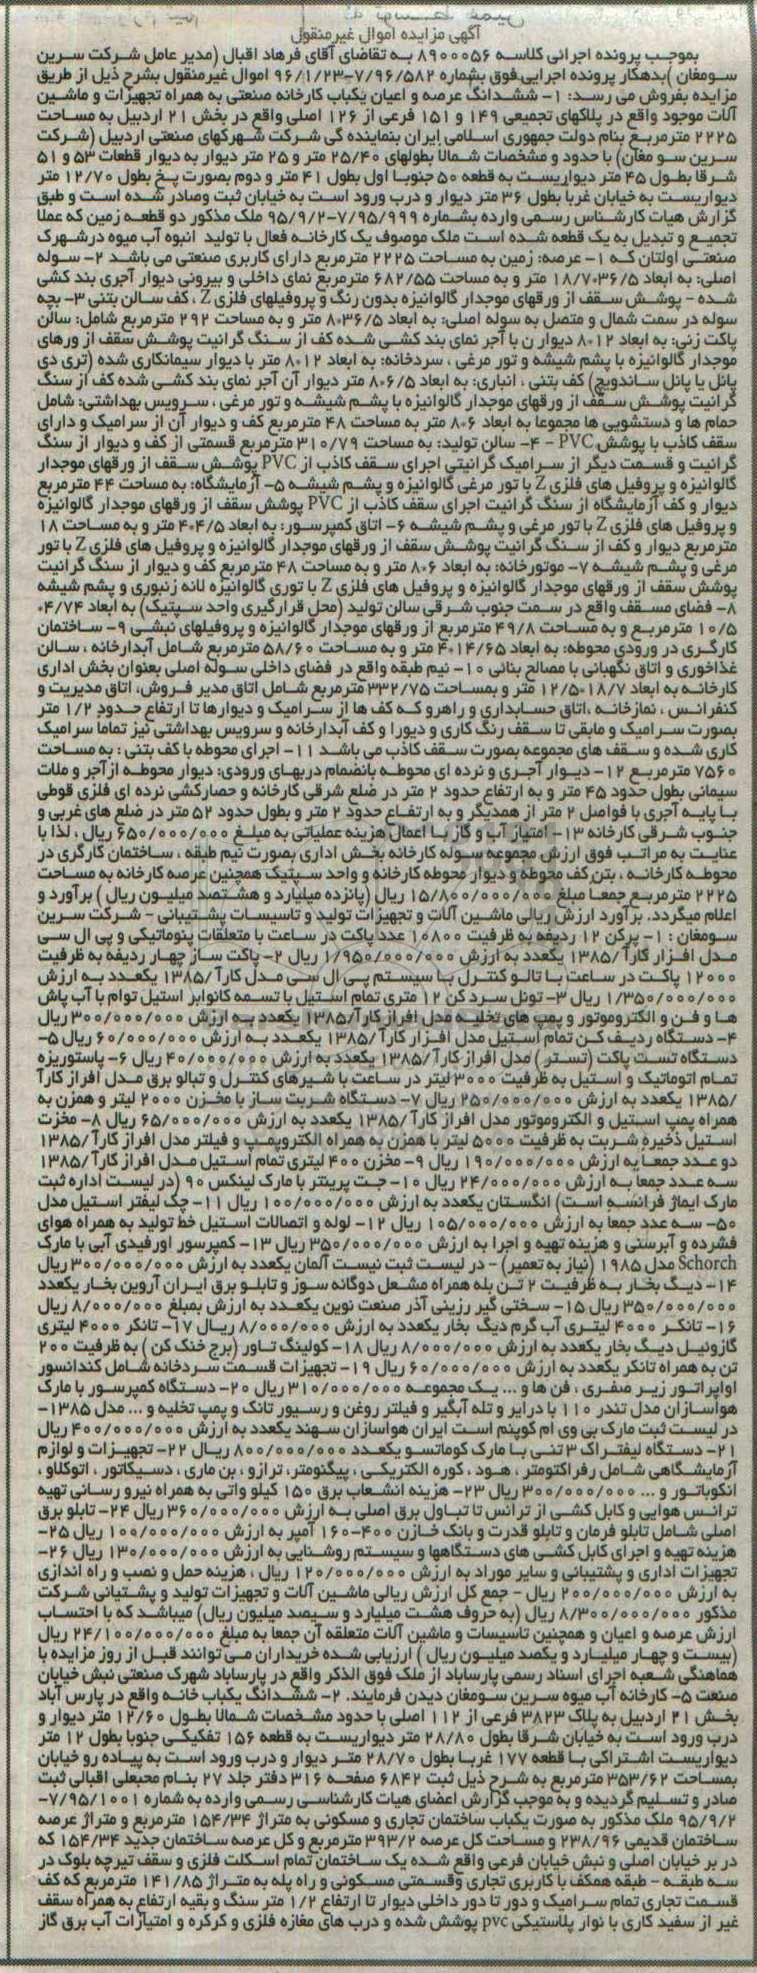 آگهی مزایده اموال غیرمنقول
بموجب پرونده اجرائی کلاسه ۸۹۰۰۰۵۶ به تقاضای آقای فرهاد اقبال (مدیر عامل شرکت سرین
سومغان )بدهکار پرونده اجرایی.فوق بشماره ۷/۹۶/۵۸۲-۹۶/۱/۲۳ اموال غیرمنقول بشرح ذیل از طریق
مزایده بفروش می رسد: ۱- ششدانگ عرصه و اعیان یکباب کارخانه صنعتی به همراه تجهیزات و ماشین
آلات موجود واقع در پلاکهای تجمیعی ۱۴۹ و ۱۵۱ فرعی از ۱۲۶ اصلی واقع در بخش ۲۱ اردبیل به مساحت
۲۲۲۵ مترمربع بنام دولت جمهوری اسلامی ایران بنماینده گی شرکت شهرکهای صنعتی اردبیل (شرکت
سرین سو مغان) با حدود و مشخصات شمالا بطولهای ۲۵/۴۰ متر و ۲۵ متر دیوار به دیوار قطعات ۵۳ و ۵۱
شرقا بطول ۴۵ متر دیواریست به قطعه ۵۰ جنوبا اول بطول ۴۱ متر و دوم بصورت پخ بطول ۱۲/۷۰ متر
دیواریست به خیابان غربا بطول ۳۶ متر دیوار و درب ورود است به خیابان ثبت وصادر شده است و طبق
گزارش هیات کارشناس رسمی وارده بشماره ۷/۹۵/۹۹۹-۹۵/۹/۲ ملک مذکور دو قطعه زمین که عملا
تجمیع و تبدیل به یک قطعه شده است ملک موصوف یک کارخانه فعال با تولید انبوه آب میوه درشهرک
صنعتی اولتان که ۱- عرصه: زمین به مساحت ۲۲۲۵ مترمربع دارای کاربری صنعتی می باشد ۲- سوله
اصلی: به ابعاد ۱۸/۷۰۳۶/۵ متر و به مساحت ۶۸۲/۵۵ مترمربع نمای داخلی و بیرونی دیوار آجری بند کشی
شده - پوشش سقف از ورقهای موجدار گالوانیزه بدون رنگ و پروفیلهای فلزی Z ، کف سالن بتنی ۳- بچه
سوله در سمت شمال و متصل به سوله اصلی: به ابعاد ۸۰۳۶/۵ متر و به مساحت ۲۹۲ مترمربع شامل: سالن
پاکت زنی: به ابعاد ۸۰۱۲ دیوار ن با آجر نمای بند کشی شده کف از سنگ گرانیت پوشش سقف از ورهای
موجدار گالوانیزه با پشم شیشه و تور مرغی ، سردخانه: به ابعاد ۸۰۱۲ متر با دیوار سیمانکاری شده (تری دی
پانل یا پانل ساندویچ) کف بتنی ، انباری: به ابعاد ۸۰۶/۵ متر دیوار آن آجر نمای بند کشی شده کف از سنگ
گرانیت پوشش سقف از ورقهای موجدار گالوانیزه با پشم شیشه و تور مرغی ، سرویس بهداشتی: شامل
حمام ها و دستشویی ها مجموعا به ابعاد ۸۰۶ متر به مساحت ۴۸ مترمربع کف و دیوار آن از سرامیک و دارای
سقف کاذب با پوشش PVC - ۴- سالن تولید: به مساحت ۳۱۰/۷۹ مترمربع قسمتی از کف و دیوار از سنگ
گرانیت و قسمت دیگر از سرامیک گرانیتی اجرای سقف کاذب از PVC پوشش سقف از ورقهای موجدار
گالوانیزه و پروفیل های فلزی Z با تور مرغی گالوانیزه و پشم شیشه ۵- آزمایشگاه: به مساحت ۴۴ مترمربع
دیوار و کف آزمایشگاه از سنگ گرانیت اجرای سقف کاذب از PVC پوشش سقف از ورقهای موجدار گالوانیزه
و پروفیل های فلزی Z با تور مرغی و پشم شیشه ۶- اتاق کمپرسور: به ابعاد ۴۰۴/۵ متر و به مساحت ۱۸
مترمربع دیوار و کف از سنگ گرانیت پوشش سقف از ورقهای موجدار گالوانیزه و پروفیل های فلزی Z با تور
مرغی و پشم شیشه ۷- موتورخانه: به ابعاد ۸۰۶ متر و به مساحت ۴۸ مترمربع کف و دیوار از سنگ گرانیت
پوشش سقف از ورقهای موجدار گالوانیزه و پروفیل های فلزی Z با توری گالوانیزه لانه زنبوری و پشم شیشه
۸- فضای مسقف واقع در سمت جنوب شرقی سالن تولید (محل قرارگیری واحد سپتیک) به ابعاد ۴/۷۴۰
۱۰/۵ مترمربع و به مساحت ۴۹/۸ مترمربع از ورقهای موجدار گالوانیزه و پروفیلهای نبشی ۹- ساختمان
کارگری در ورودی محوطه: به ابعاد ۴۰۱۴/۶۵ متر و به مساحت ۵۸/۶۰ مترمربع شامل آبدارخانه ، سالن
غذاخوری و اتاق نگهبانی با مصالح بنائی ۱۰- نیم طبقه واقع در فضای داخلی سوله اصلی بعنوان بخش اداری
کارخانه به ابعاد ۱۲/۵۰۱۸/۷ متر و بمساحت ۳۳۲/۷۵ مترمربع شامل اتاق مدیر فروش، اتاق مدیریت و
کنفرانس ، نمازخانه ،اتاق حسابداری و راهرو که کف ها از سرامیک و دیوارها تا ارتفاع حدود ۱/۲ متر
بصورت سرامیک و مابقی تا سقف رنگ کاری و دیورا و کف آبدارخانه و سرویس بهداشتی نیز تماما سرامیک
کاری شده و سقف های مجموعه بصورت سقف کاذب می باشد ۱۱- اجرای محوطه با کف بتنی : به مساحت
۷۵۶۰ مترمربع ۱۲- دیوار آجری و نرده ای محوطه بانضمام دربهای ورودی: دیوار محوطه ازآجر و ملات
سیمانی بطول حدود ۴۵ متر و به ارتفاع حدود ۲ متر در ضلع شرقی کارخانه و حصارکشی نرده ای فلزی قوطی
با پایه آجری با فواصل ۲ متر از همدیگر و به ارتفاع حدود ۲ متر و بطول حدود ۵۲ متر در ضلع های غربی و
جنوب شرقی کارخانه ۱۳- امتیاز آب و گاز با اعمال هزینه عملیاتی به مبلغ ۶۵۰/۰۰۰/۰۰۰ ریال ، لذا با
عنایت به مراتب فوق ارزش مجموعه سوله کارخانه بخش اداری بصورت نیم طبقه ، ساختمان کارگری در
محوطه کارخانه ، بتن کف محوطه و دیوار محوطه کارخانه و واحد سپتیک همچنین عرصه کارخانه به مساحت
۲۲۲۵ مترمربع جمعا مبلغ ۱۵/۸۰۰/۰۰۰/۰۰۰ ریال (پانزده میلیارد و هشتصد میلیون ریال ) برآورد و
اعلام میگردد. برآورد ارزش ریالی ماشین آلات و تجهیزات تولید و تاسیسات پشتیبانی - شرکت سرین
سومغان : ۱- پرکن ۱۲ ردیفه به ظرفیت ۱۰۸۰۰ عدد پاکت در ساعت با متعلقات پنوماتیکی و پی ال سی
مدل افزار کارآ /۱۳۸۵ یکعدد به ارزش ۱/۹۵۰/۰۰۰/۰۰۰ ریال ۲- پاکت ساز چهار ردیفه به ظرفیت
۱۲۰۰۰ پاکت در ساعت با تالو کنترل با سیستم پی ال سی مدل کارآ /۱۳۸۵ یکعدد به ارزش
۱/۳۵۰/۰۰۰/۰۰۰ ریال ۳- تونل سرد کن ۱۲ متری تمام استیل با تسمه کانوایر استیل توام با آب پاش
ها و فن و الکتروموتور و پمپ های تخلیه مدل افراز کارآ/۱۳۸۵ یکعدد به ارزش ۳۰۰/۰۰۰/۰۰۰ ریال
۴- دستگاه ردیف کن تمام استیل مدل افزار کارآ /۱۳۸۵ یکعدد به ارزش ۶۰/۰۰۰/۰۰۰ ریال ۵-
دستگاه تست پاکت (تستر) مدل افراز کارآ/۱۳۸۵ یکعدد به ارزش ۴۰/۰۰۰/۰۰۰ ریال ۶- پاستوریزه
تمام اتوماتیک و استیل به ظرفیت ۳۰۰۰ لیتر در ساعت با شیرهای کنترل و تبالو برق مدل افراز کارآ
/۱۳۸۵ یکعدد به ارزش ۲۵۰/۰۰۰/۰۰۰ ریال ۷- دستگاه شربت ساز با مخزن ۲۰۰۰ لیتر و همزن به
همراه پمپ استیل و الکتروموتور مدل افراز کارآ /۱۳۸۵ یکعدد به ارزش ۶۵/۰۰۰/۰۰۰ ریال ۸- مخزت
استیل ذخیره شربت به ظرفیت ۵۰۰۰ لیتر با همزن به همراه الکتروپمپ و فیلتر مدل افراز کارآ /۱۳۸۵
دو عدد جمعا به ارزش ۱۹۰/۰۰۰/۰۰۰ ریال ۹- مخزن ۴۰۰ لیتری تمام استیل مدل افراز کارآ /۱۳۸۵
سه عدد جمعا به ارزش ۲۴/۰۰۰/۰۰۰ ریال ۱۰- جت پرینتر با مارک لینکس ۹۰ (در لیست اداره ثبت
مارک ایماژ فرانسه است) انگستان یکعدد به ارزش ۱۰۰/۰۰۰/۰۰۰ ریال ۱۱- چک لیفتر استیل مدل
۵۰- سه عدد جمعا به ارزش ۱۰۵/۰۰۰/۰۰۰ ریال ۱۲- لوله و اتصالات استیل خط تولید به همراه هوای
فشرده و آبرسنی و هزینه تهیه و اجرا به ارزش ۳۵۰/۰۰۰/۰۰۰ ریال ۱۳- کمپرسور اورفیدی آبی با مارک
Schorch مدل ۱۹۸۵ (نیاز به تعمیر) - در لیست ثبت نیست آلمان یکعدد به ارزش ۳۰۰/۰۰۰/۰۰۰ ریال
۱۴- دیگ بخار به ظرفیت ۲ تن پله همراه مشعل دوگانه سوز و تابلو برق ایران آروین بخار یکعدد
۳۵۰/۰۰۰/۰۰۰ ریال ۱۵- سختی گیر رزینی آذر صنعت نوین یکعدد به ارزش بمبلغ ۸/۰۰۰/۰۰۰ ریال
۱۶- تانکر ۴۰۰۰ لیتری آب گرم دیگ بخار یکعدد به ارزش ۸/۰۰۰/۰۰۰ ریال ۱۷- تانکر ۴۰۰۰ لیتری
گازوئیل دیگ بخار یکعدد به ارزش ۸/۰۰۰/۰۰۰ ریال ۱۸- کولینگ تاور (برج خنک کن ) به ظرفیت ۲۰۰
تن به همراه تانکر یکعدد به ارزش ۶۰/۰۰۰/۰۰۰ ریال ۱۹- تجهیزات قسمت سردخانه شامل کندانسور
اواپراتور زیر صفری ، فن ها و ... یک مجموعه ۳۱۰/۰۰۰/۰۰۰ ریال ۲۰- دستگاه کمپرسور با مارک
هواسازان مدل تندر ۱۱۰ با درایر و تله آبگیر و فیلتر روغن و رسیور تانک و پمپ تخلیه و ... مدل ۱۳۸۵-
در لیست ثبت مارک بی وی ام کوپنم است ایران هواسازان سهند یکعدد به ارزش ۴۰۰/۰۰۰/۰۰۰ ریال
۲۱- دستگاه لیفتراک ۳ تنی با مارک کوماتسو یکعدد ۸۰۰/۰۰۰/۰۰۰ ریال ۲۲- تجهیزات و لوازم
آزمایشگاهی شامل رفراکتومتر ، هود ، کوره الکتریکی ، پیگنومتر، ترازو ، بن ماری ، دسیکاتور ، اتوکلاو ،
انکوباتور و ... ۳۰۰/۰۰۰/۰۰۰ ریال ۲۳- هزینه انشعاب برق ۱۵۰ کیلو واتی به همراه نیرو رسانی تهیه
ترانس هوایی و کابل کشی از ترانس تا تباول برق اصلی به ارزش ۳۶۰/۰۰۰/۰۰۰ ریال ۲۴- تابلو برق
اصلی شامل تابلو فرمان و تابلو قدرت و بانک خازن ۴۰۰-۱۶۰ آمپر به ارزش ۱۰۰/۰۰۰/۰۰۰ ریال ۲۵-
هزینه تهیه و اجرای کابل کشی های دستگاهها و سیستم روشنایی به ارزش ۱۳۰/۰۰۰/۰۰۰ ریال ۲۶-
تجهیزات اداری و پشتیبانی و سایر موراد به ارزش ۱۲۰/۰۰۰/۰۰۰ ریال ، هزینه حمل و نصب و راه اندازی
به ارزش ۲۰۰/۰۰۰/۰۰۰ ریال - جمع کل ارزش ریالی ماشین آلات و تجهیزات تولید و پشتیانی شرکت
مذکور ۸/۳۰۰/۰۰۰/۰۰۰ ریال (به حروف هشت میلیارد و سیصد میلیون ریال) میباشد که با احتساب
ارزش عرصه و اعیان و همچنین تاسیسات و ماشین آلات متعلقه آن جمعا به مبلغ ۲۴/۱۰۰/۰۰۰/۰۰۰ ریال
(بیست و چهار میلیارد و یکصد میلیون ریال ) ارزیابی شده خریداران می توانند قبل از روز مزایده با
هماهنگی شعبه اجرای اسناد رسمی پارساباد از ملک فوق الذکر واقع در پارساباد شهرک صنعتی نبش خیابان
صنعت ۵- کارخانه آب میوه سرین سومغان دیدن فرمایند. ۲- ششدانگ یکباب خانه واقع در پارس آباد
بخش ۲۱ اردبیل به پلاک ۳۸۲۳ فرعی از ۱۱۲ اصلی با حدود مشخصات شمالا بطول ۱۲/۶۰ متر دیوار و
درب ورود است به خیابان شرقا بطول ۲۸/۸۰ متر دیواریست به قطعه ۱۵۶ تفکیکی جنوبا بطول ۱۲ متر
دیواریست اشتراکی با قطعه ۱۷۷ غربا بطول ۲۸/۷۰ متر دیوار و درب ورود است به پیاده رو خیابان
بمساحت ۳۵۳/۶۲ مترمربع به شرح ذیل ثبت ۶۸۴۲ صفحه ۳۱۶ دفتر جلد ۲۷ بنام محبعلی اقبالی ثبت
صادر و تسلیم گردیده و به موجب گزارش اعضای هیات کارشناسی رسمی وارده به شماره ۷/۹۵/۱۰۰۱-
۹۵/۹/۲ ملک مذکور به صورت یکباب ساختمان تجاری و مسکونی به متراژ ۱۵۴/۳۴ مترمربع و متراژ عرصه
ساختمان قدیمی ۲۳۸/۹۶ و مساحت کل عرصه ۳۹۳/۲ مترمربع و کل عرصه ساختمان جدید ۱۵۴/۳۴ که
در بر خیابان اصلی و نبش خیابان فرعی واقع شده یک ساختمان تمام اسکلت فلزی و سقف تیرچه بلوک در
سه طبقه - طبقه همکف با کاربری تجاری وقسمتی مسکونی و راه پله به متراژ ۱۴۱/۸۵ مترمربع که کف
قسمت تجاری تمام سرامیک و دور تا دور داخلی دیوار تا ارتفاع ۱/۲ متر سنگ و بقیه ارتفاع به همراه سقف
غیر از سفید کاری با نوار پلاستیکی pvc پوشش شده و درب های مغازه فلزی و کرکره و امتیازات آب برق گاز